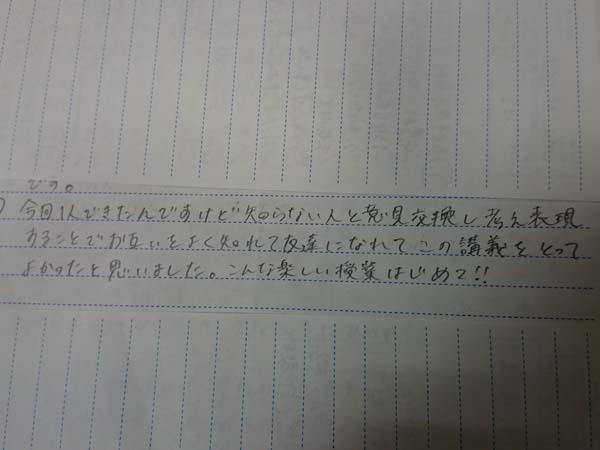 です。
今回1人できたんですけど知らない人と意見交換し考え表現
することでお互いをよく知れて友達になれてこの講義をとって
よかったと思いました。こんな楽しい授業はじめて!!